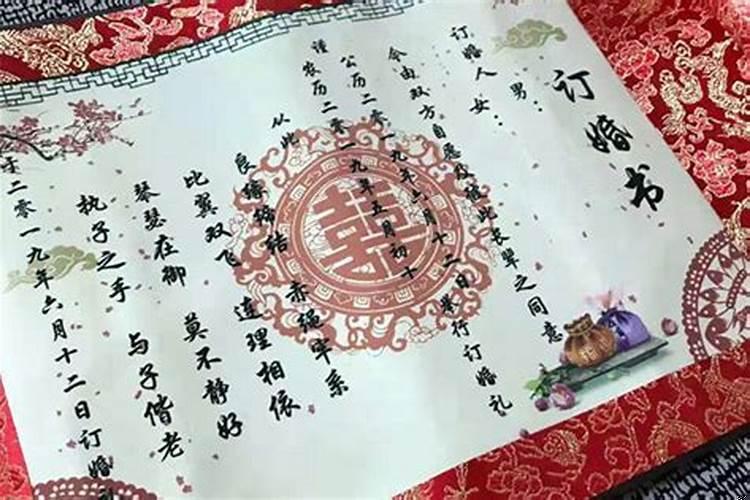 订婚书
男：
订婚人 女：
今由双方自愿及 此长辈之同意
公历二零一九年六月十二日举行订婚礼
谨农历二零一九年五月初十
从此
良缘缔结 赤绳牢系
比翼双飞 连理相依
琴瑟在御 莫不静好
执子之手 与子偕老
于二零一九年六月十二日订婚